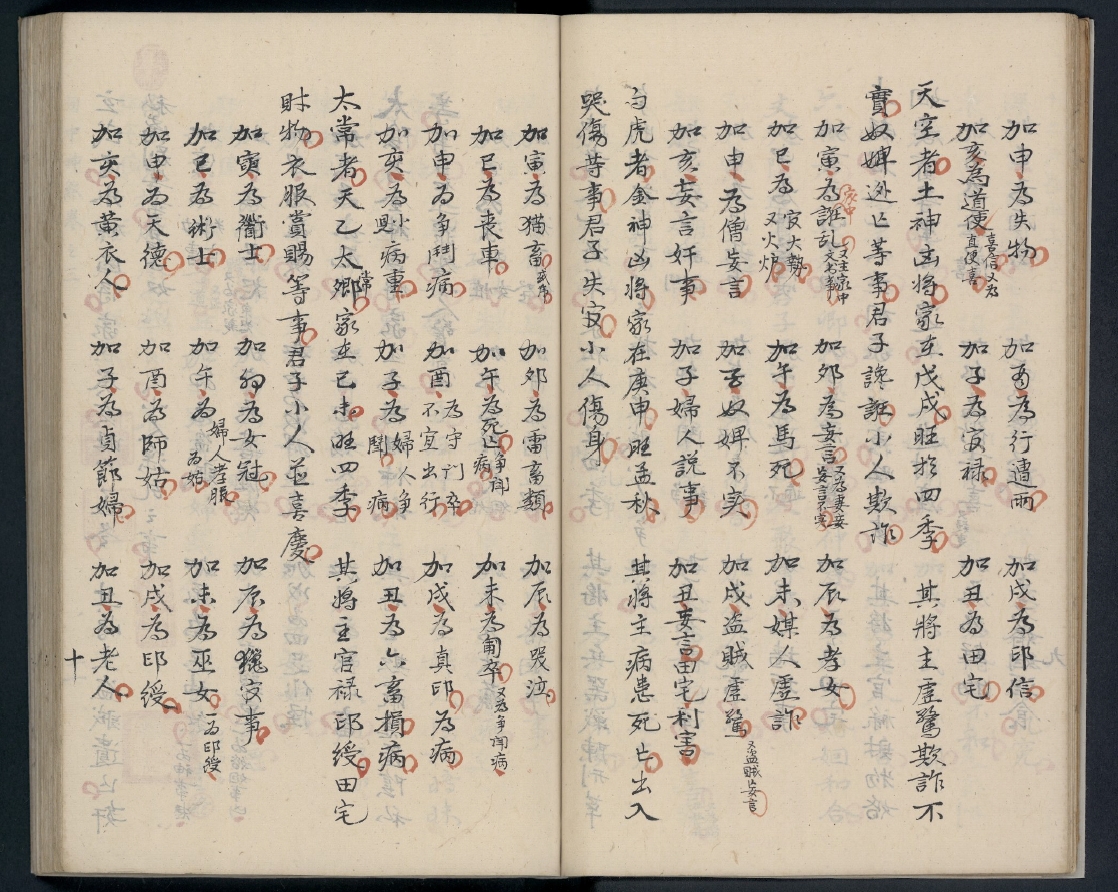 加申為失物 加酉為行遭雨 加戌為印信
加亥為道使 喜信又為直使喜 加子為官祿 加丑為田宅
天空者土神凶將家在戊戌旺於四季 其將主虛驚欺詐不
實奴婢逃亡等事君子讒誑小人欺詐
加寅為誰乱 又主家中文书事 加卯為妄言 又為妻妾妄言不实 加辰為孝女
加巳為 官大熱又火炉 加午為馬死 加未媒人虛詐
加申為僧妄言 加酉奴婢不实 加戌盗賊虛驚 又盗賊亡妄言
加亥妄言奸事 加子婦人説事 加丑妄言田宅利害
白虎者金神凶將家在庚申旺孟秋 其將主病患死亡出入
哭傷等事君子失官小人傷身
加寅為猫畜 加卯為雷畜類 加辰為哭泣
加巳為喪車 加午為死亡 争闘病 加未為 又為争闘病
加申為争鬥病 加酉 為守 不宜出行 加戌為真印為病
加亥為 病重 加子為 婦人争鬪病 加丑為六畜損病
太常者天乙太卿家在己未旺四季 其將主官禄印綬田宅
財物衣服賞賜等事君子小人並喜慶
加寅為衛士 加卯為女冠 加辰為 事
加巳為術士 加午為 婦人孝服 為姑 加未為巫女 一為印綬
加申為天德 加酉為師姑 加戌為印綬
加亥為黃衣人 加子為貞節婦 加丑為老人
十